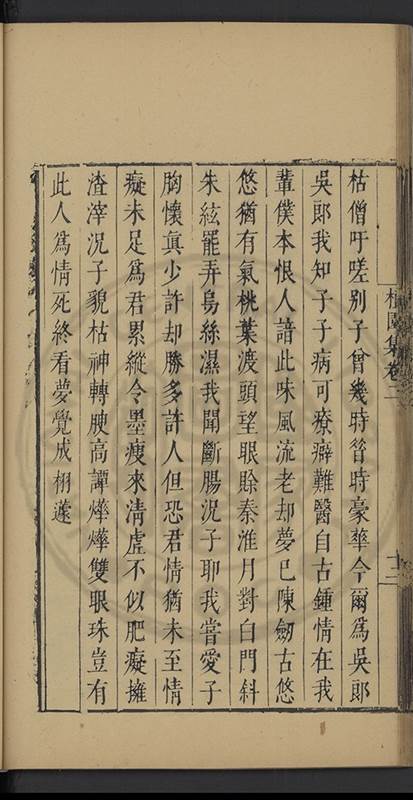 植園集卷二
十二
枯僧吁嗟别子曾幾時昝時豪華今爾爲吳郎
吳郎我知子子病可療癖難醫自古鍾情在我
輩僕本恨人諳此味風流老却夢已陳劒古悠
悠猶有氣桃葉渡頭望眼賒秦淮月對白門斜
朱絃罷弄烏絲濕我聞斷腸況子耶我嘗愛子
胸懷眞少許却勝多許人但恐君情猶未至情
癡未足爲君累縱令墨瘦來清虛不似肥癡擁
渣滓況子貌枯神轉腴高譚燁燁雙眼珠豈有
此人爲情死終看夢覺成栩蘧